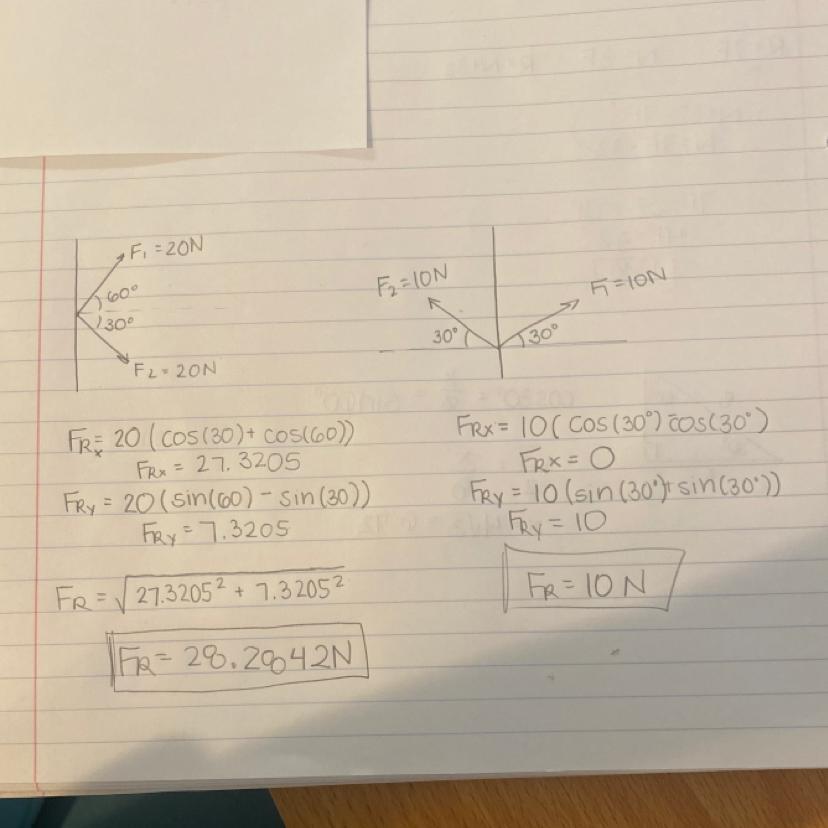 F₁ = 20N
60°
30°
F₂ = 20N
FRx = 20(cos(30) + cos(60))
FRx = 27.3205
FRy = 20(sin(60) - sin(30))
FRy = 7.3205
FR = √27.3205² + 7.3205²
FR = 28.2842N
F₂ = 10N
F₁ = 10N
30°
30°
FRx = 10(cos(30°) - cos(30°)
FRx = 0
FRy = 10(sin(30°) + sin(30°))
FRy = 10
FR = 10N